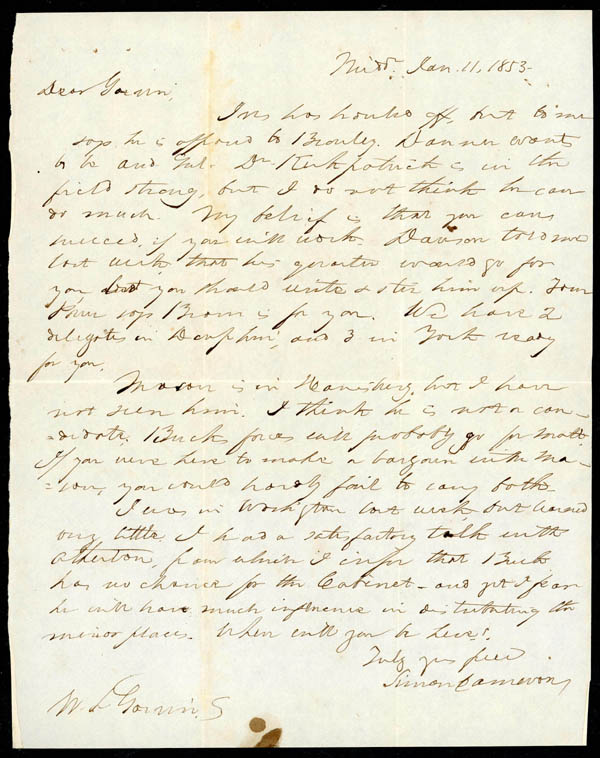 Midd. Jan. 11, 1853
Dear Gorwin,
Ives has backed off, but to me
says he is opposed to Brawley. Danner wants
to be and Dr. Kirkpatrick is in the
field strong, but I do not think he can
do much. My belief is that you can
succeed, if you will work. Dawson told me
last week that his quarter would go for
you you should write & stir him up. Four
says is for you. We have 2
delegates in Dauphin, and 3 in York ready
for you.
Mason is in Harrisburg but I have
not seen him. I think he is not a can-
-didate. Bucks forces will probably go for
If you were here to make a bargain with Ma-
-son, you would hardly fail to carry both.
I was in Washington last week but learned
very little. I had a satisfactory talk with
Atherton, from which I infer that Buck
has no chance for the Cabinet - and yet I fear
he will have much influence in distributing the
minor places. When will you be here?
Truly yrs
Simon Cameron
W. L. Gorwin